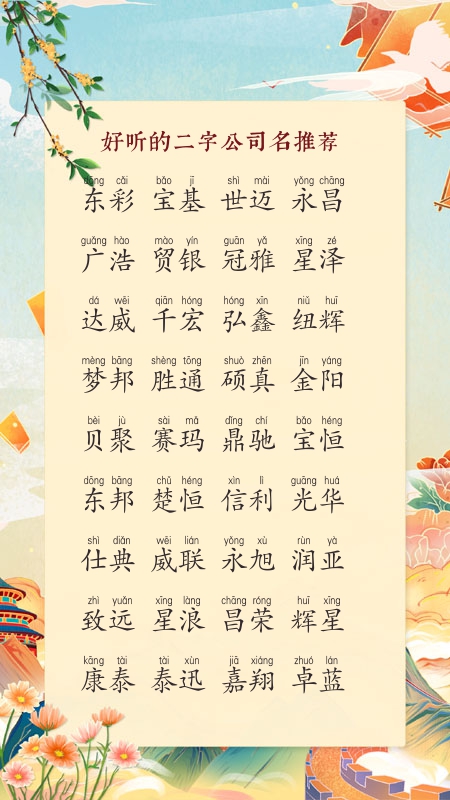 好听的二字公司名推荐
dōng cǎi bǎo jī shì mài yǒng chāng
东彩 宝基 世迈 永昌
guǎng hào mào yín guān yǎ xīng zé
广浩 贸银 冠雅 星泽
dá wēi qiān hóng hóng xīn niǔ huī
达威 千宏 弘鑫 纽辉
mèng bāng shèng tōng shuò zhēn jīn yáng
梦邦 胜通 硕真 金阳
bèi jù sài mǎ dǐng chí bǎo héng
贝聚 赛玛 鼎驰 宝恒
dōng bāng chǔ héng xìn lì guāng huá
东邦 楚恒 信利 光华
shì diǎn wēi lián yǒng xù rùn yà
仕典 威联 永旭 润亚
zhì yuǎn xīng làng chāng róng huī xīng
致远 星浪 昌荣 辉星
kāng tài tài xùn jiā xiáng zhuó lán
康泰 泰迅 嘉翔 卓蓝